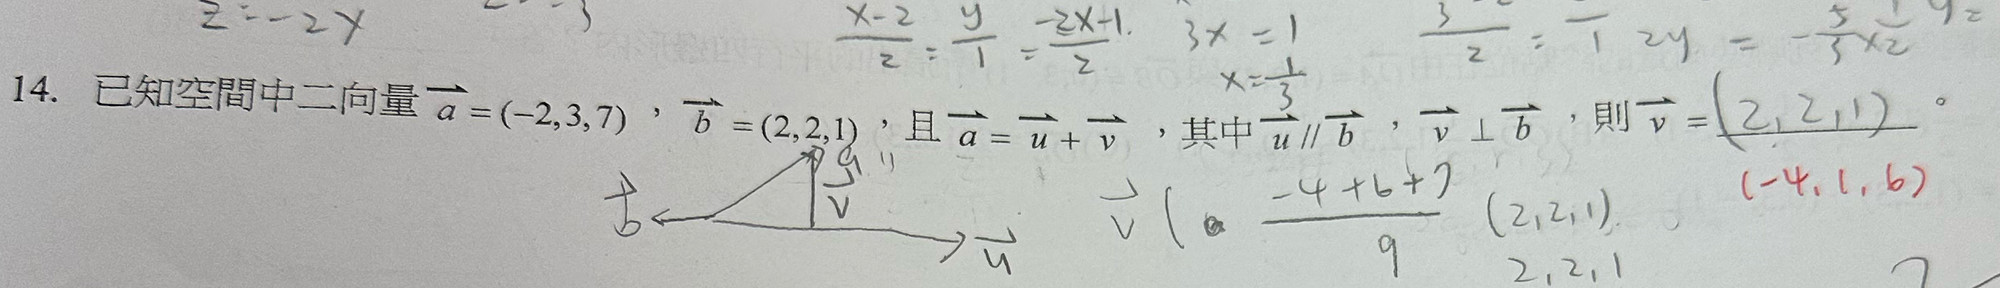 z=-2x
x-2/2 = y/1 = -2x+1/2 3x=1 2y = -5/3×1/2 y=
x=1/3
14. 已知空間中二向量 a⃗ = (-2,3,7),b⃗ = (2,2,1),且 a⃗ = u⃗ + v⃗,其中 u⃗ // b⃗,v⃗ ⊥ b⃗,則 v⃗ = (2,2,1)。
(-4,1,6)
a
b⃗ v⃗ u⃗
v⃗ ( -4+6+7/9 (2,2,1)
2,2,1